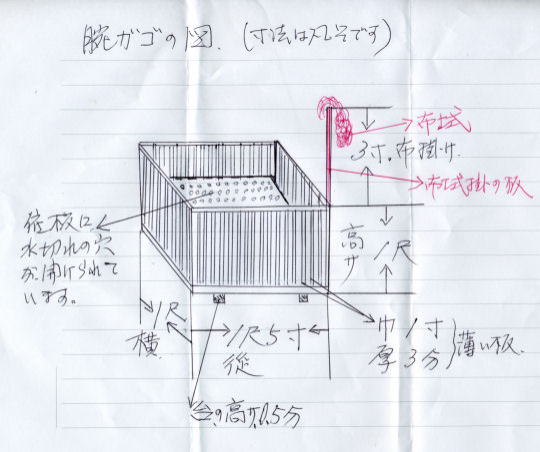 腕ガゴの図.(寸法は凡そです)
布拭
3寸.布掛け.
布拭掛の板
高サ 1尺
底板に
水切れの穴
が開けられて
います。
1尺
横
1尺5寸
従
巾1寸
厚3分
薄い板.
台の高サ0.5分